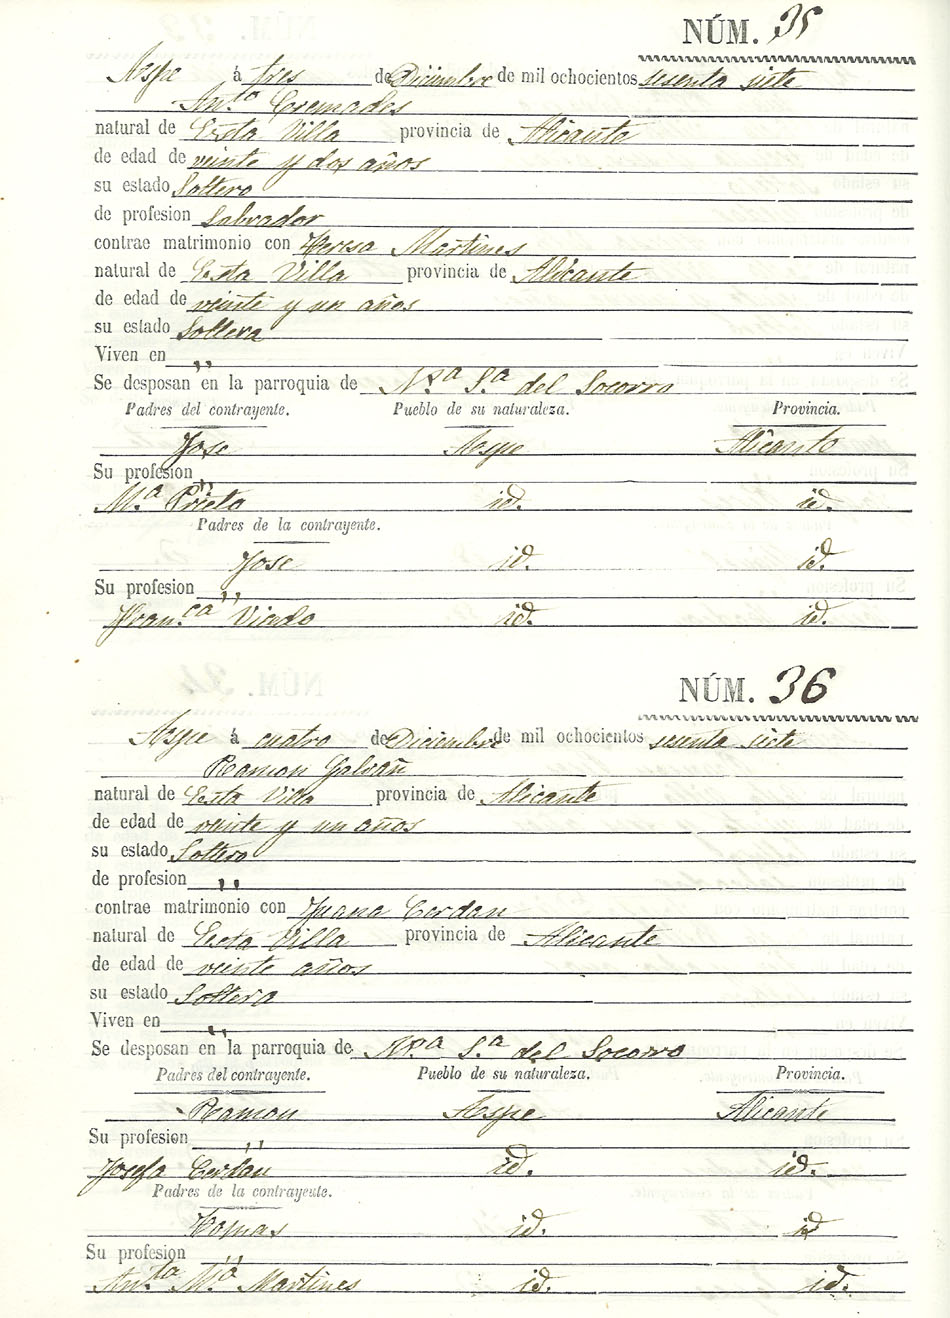 NÚM. 35
Aspe á tres de Diciembre de mil ochocientos sesenta siete
Ant.º Cremades
natural de Esta Villa provincia de Alicante
de edad de veinte y dos años
su estado Soltero
de profesion Labrador
contrae matrimonio con Teresa Martines
natural de Esta Villa provincia de Alicante
de edad de veinte y un años
su estado Soltera
Viven en ,,
Se desposan en la parroquia de Nr.ª S.ª del Socorro
Padres del contrayente. Pueblo de su naturaleza. Provincia.
Jose Aspe Alicante
Su profesion ,,
M.ª Prieto id. id.
Padres de la contrayente.
Jose id. id.
Su profesion ,,
Fran.ca id. id.
NÚM. 36
Aspe á cuatro de Diciembre de mil ochocientos sesenta siete
Ramon Galvañ
natural de Esta Villa provincia de Alicante
de edad de veinte y un años
su estado Soltero
de profesion ,,
contrae matrimonio con Juana Cerdan
natural de Esta Villa provincia de Alicante
de edad de veinte años
su estado Soltera
Viven en ,,
Se desposan en la parroquia de Nr.ª S.ª del Socorro
Padres del contrayente. Pueblo de su naturaleza. Provincia.
Ramon Aspe Alicante
Su profesion ,,
Josefa Cerdan id. id.
Padres de la contrayente.
Tomas id. id
Su profesion ,,
Ant.ta M.ª Martines id. id.